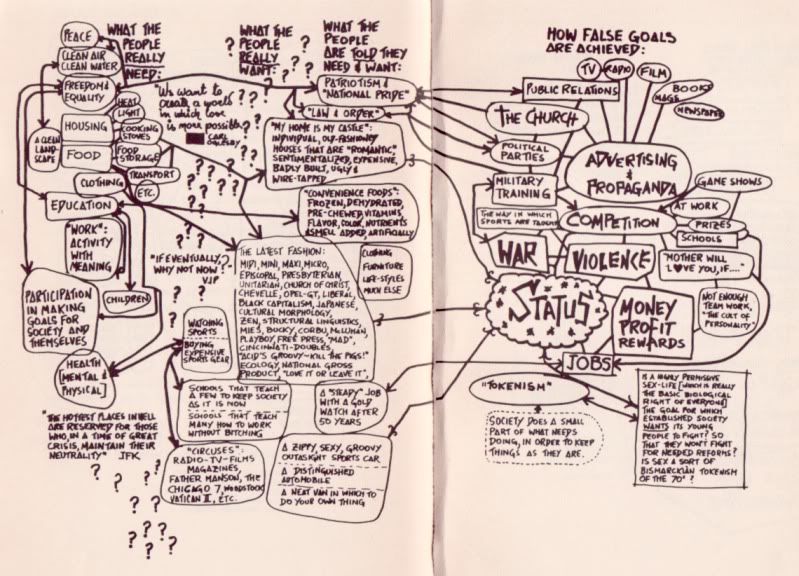 WHAT THE
PEOPLE
REALLY
NEED:
PEACE
CLEAN AIR
CLEAN WATER
FREEDOM &
EQUALITY
HOUSING
FOOD
HEAT
LIGHT
COOKING
STOVES
FOOD
STORAGE
TRANSPORT
ETC.
A CLEAN
LAND
SCAPE
CLOTHING
EDUCATION
"WORK":
ACTIVITY
WITH
MEANING
PARTICIPATION
IN MAKING
GOALS FOR
SOCIETY AND
THEMSELVES
CHILDREN
HEALTH
[MENTAL &
PHYSICAL]
"THE HOTTEST PLACES IN HELL
ARE RESERVED FOR THOSE
WHO, IN A TIME OF GREAT
CRISIS, MAINTAIN THEIR
NEUTRALITY" JFK
WHAT
THE
PEOPLE
REALLY
WANT:
"We want to
create a world
in which love
is more possible."
CARL
OGLESBY
"IF EVENTUALLY,
WHY NOT NOW?"
VJP
WHAT THE
PEOPLE
ARE TOLD THEY
NEED & WANT:
PATRIOTISM &
"NATIONAL PRIDE"
"LAW & ORDER"
"MY HOME IS MY CASTLE":
INDIVIDUAL, OLD-FASHIONEY
HOUSES THAT ARE "ROMANTIC"
SENTIMENTALIZED, EXPENSIVE,
BADLY BUILT, UGLY &
WIRE-TAPPED
"CONVENIENCE FOODS":
FROZEN, DEHYDRATED,
PRE-CHEWED, VITAMINS,
FLAVOR, COLOR, NUTRIENTS
& SMELL ADDED, ARTIFICIALLY
THE LATEST FASHION:
MIDI, MINI, MAXI, MICRO,
EPISCOPAL, PRESBYTERIAN,
UNITARIAN, CHURCH OF CHRIST,
CHEVELLE, OPEL-GT, LIBERAL,
BLACK CAPITALISM, JAPANESE,
CULTURAL MORPHOLOGY,
ZEN, STRUCTURAL LINGUISTICS,
MIES, BUCKY, CORBU, McLUHAN,
PLAYBOY, FREE PRESS, "MAD",
CINCINNATI-DOUBLES,
"ACID'S GROOVY—KILL THE PIGS!",
ECOLOGY, NATIONAL GROSS
PRODUCT, "LOVE IT OR LEAVE IT",
CLOTHING
FURNITURE
LIFE-STYLES
MUCH ELSE
WATCHING
SPORTS
BUYING
EXPENSIVE
SPORTS GEAR
SCHOOLS THAT TEACH
A FEW TO KEEP SOCIETY
AS IT IS NOW
SCHOOLS THAT TEACH
MANY HOW TO WORK
WITHOUT BITCHING
"CIRCUSES":
RADIO-TV-FILMS
MAGAZINES,
FATHER MANSON, THE
CHICAGO 7, WOODSTOCK
VATICAN II, ETC.
A "STEADY" JOB
WITH A GOLD
WATCH AFTER
50 YEARS
A ZIPPY, SEXY, GROOVY
OUTASIGHT SPORTS CAR
A DISTINGUISHED
AUTOMOBILE
A NEAT VAN IN WHICH TO
DO YOUR OWN THING
HOW FALSE GOALS
ARE ACHIEVED:
TV
RADIO
FILM
BOOKS
MAGS
NEWSPAPER
PUBLIC RELATIONS
THE CHURCH
POLITICAL
PARTIES
ADVERTISING
&
PROPAGANDA
MILITARY
TRAINING
GAME SHOWS
THE WAY IN WHICH
SPORTS ARE TAUGHT
COMPETITION
AT WORK
PRIZES
SCHOOLS
WAR
VIOLENCE
"MOTHER WILL
L♥VE YOU, IF...."
STATUS
MONEY
PROFIT
REWARDS
NOT ENOUGH
TEAM WORK,
"THE CULT OF
PERSONALITY"
JOBS
"TOKENISM"
SOCIETY DOES A SMALL
PART OF WHAT NEEDS
DOING, IN ORDER TO KEEP
THINGS AS THEY ARE.
IS A HIGHLY PERMISSIVE
SEX-LIFE [WHICH IS REALLY
THE BASIC BIOLOGICAL
RIGHT OF EVERYONE]
THE GOAL FOR WHICH
ESTABLISHED SOCIETY
WANTS ITS YOUNG
PEOPLE TO FIGHT? SO
THAT THEY WON'T FIGHT
FOR NEEDED REFORMS?
IS SEX A SORT OF
BISMARCKIAN TOKENISM
OF THE 70s?